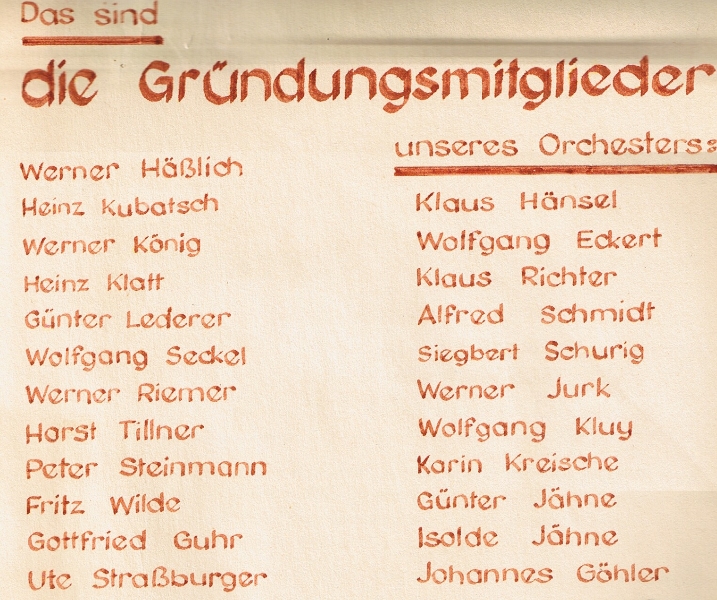 Das sind
die Gründungsmitglieder
unseres Orchesters:
Werner Häßlich
Heinz Kubatsch
Werner König
Heinz Klatt
Günter Lederer
Wolfgang Seckel
Werner Riemer
Horst Tillner
Peter Steinmann
Fritz Wilde
Gottfried Guhr
Ute Straßburger
Klaus Hänsel
Wolfgang Eckert
Klaus Richter
Alfred Schmidt
Siegbert Schurig
Werner Jurk
Wolfgang Kluy
Karin Kreische
Günter Jähne
Isolde Jähne
Johannes Göhler